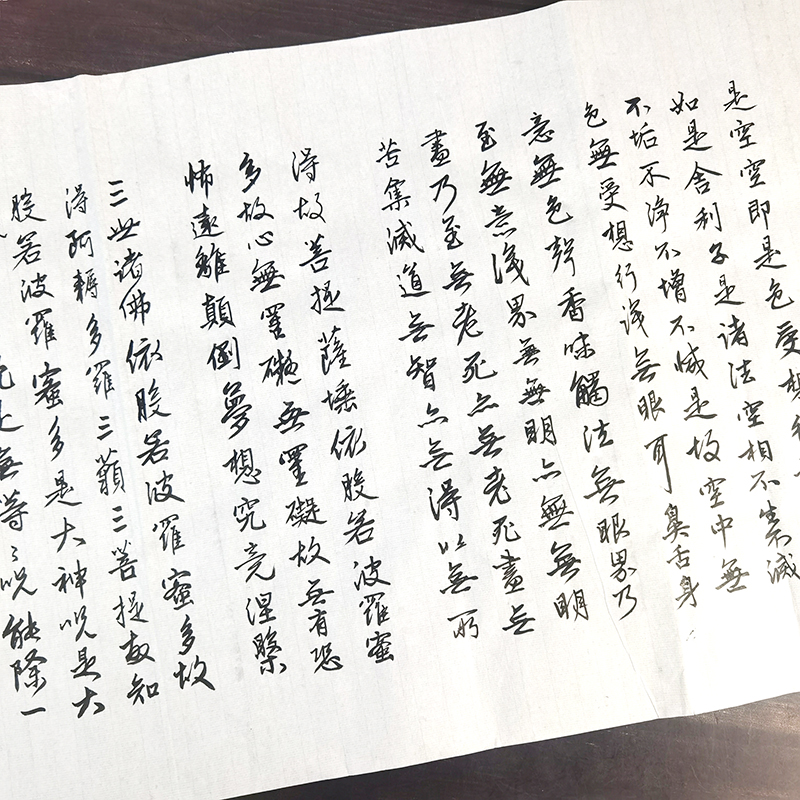 是空空即是色受想
如是舍利子是诸法空相不生不滅
不垢不淨不增不減是故空中無
色無受想行識無眼耳鼻舌身
意無色聲香味觸法無眼界乃
至無意識界無無明亦無無明
盡乃至無老死亦無老死盡無
苦集滅道無智亦無得以無所
得故菩提薩埵依般若波羅蜜
多故心無罣礙無罣礙故無有恐
怖遠離顛倒夢想究竟涅槃
三世诸佛依般若波羅蜜多故
得阿耨多羅三藐三菩提故知
般若波羅蜜多是大神咒是大
是無等々咒能除一